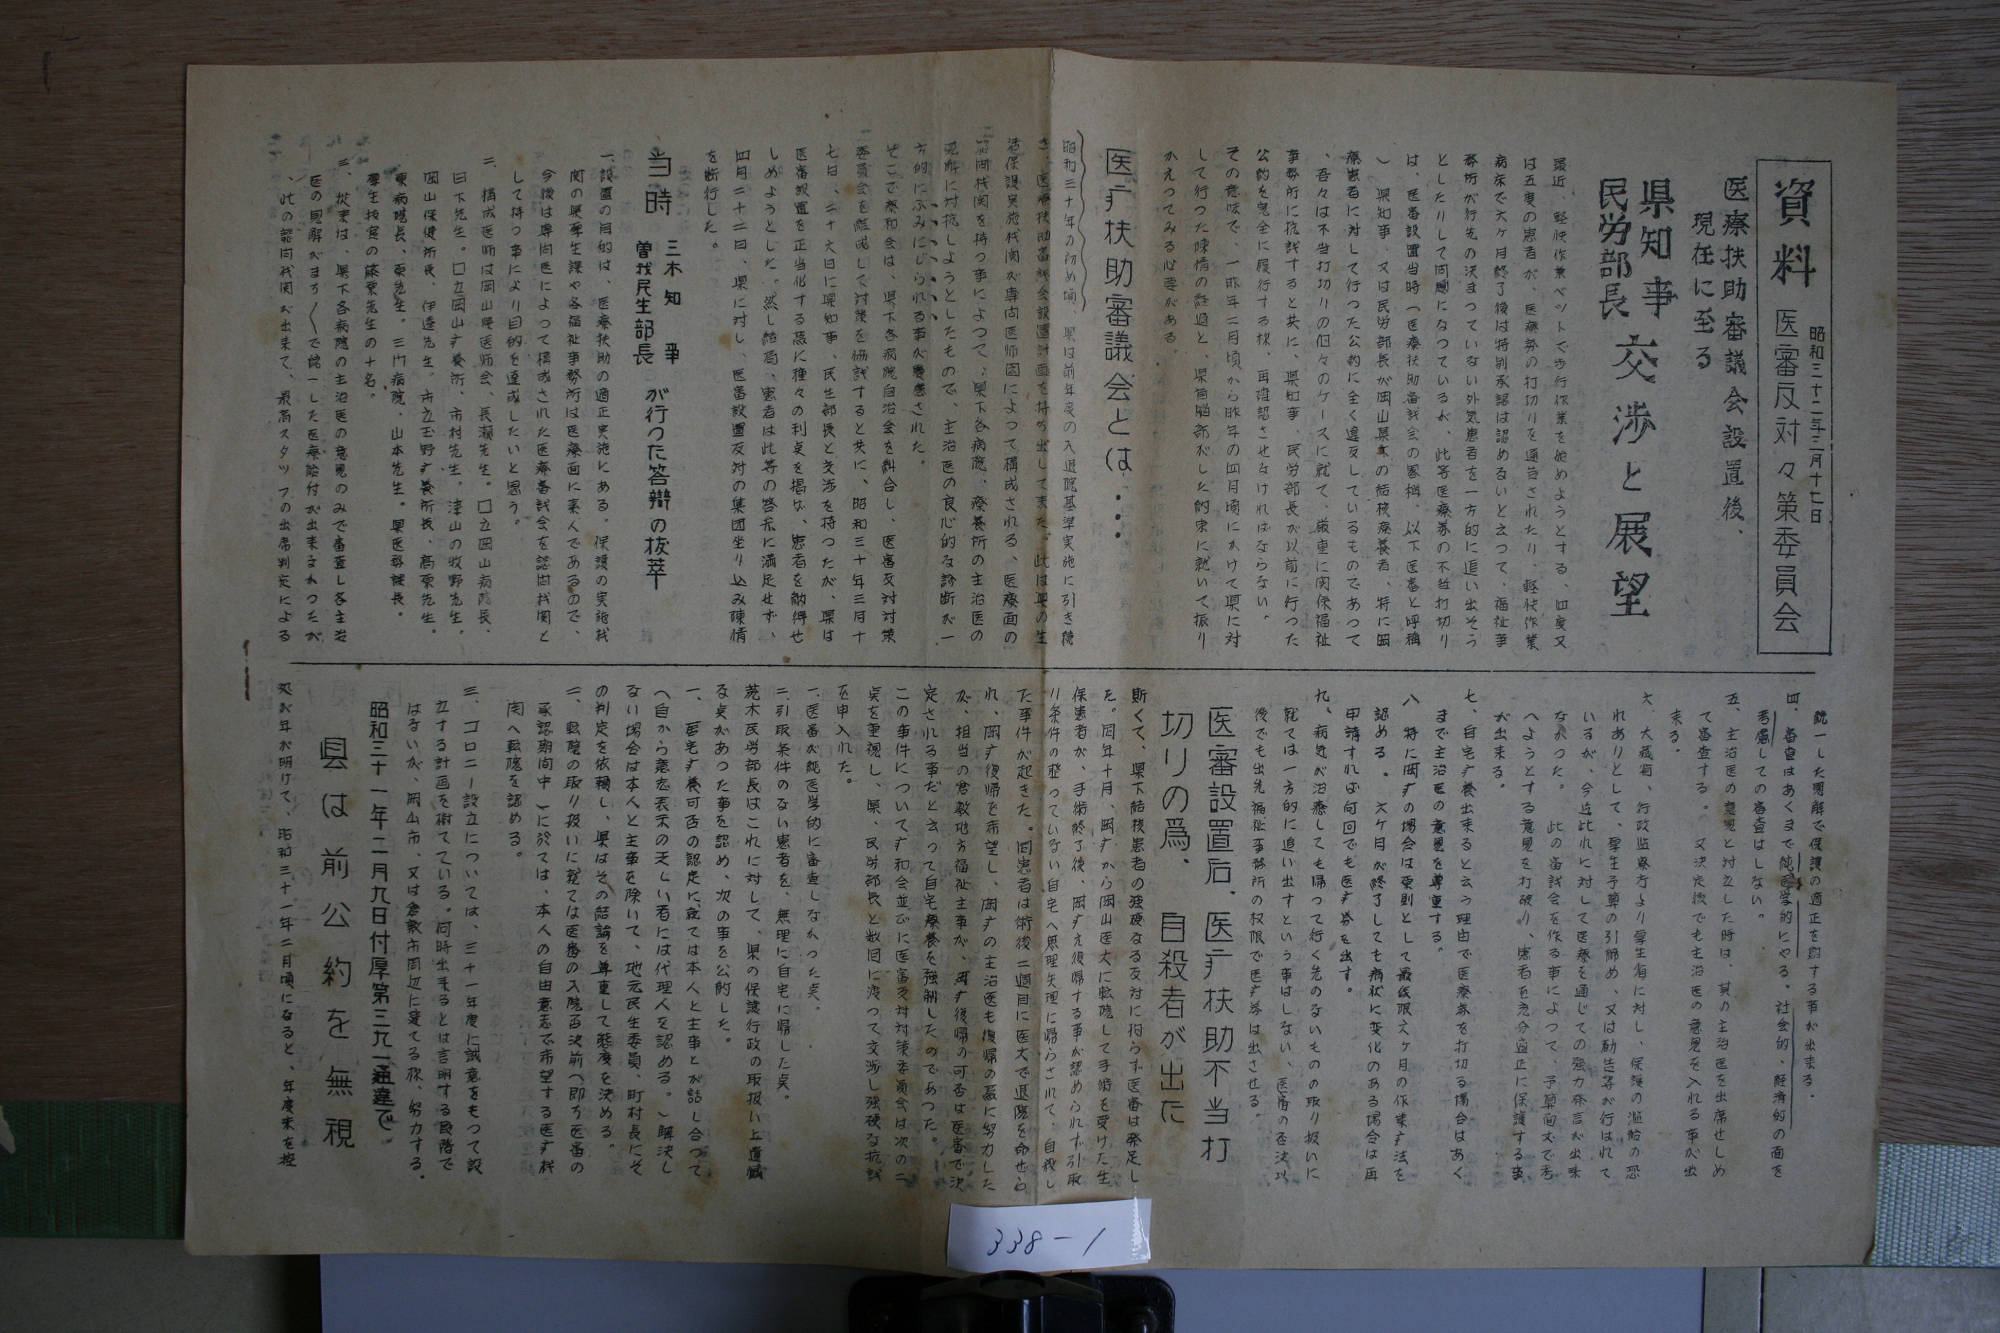 資料
昭和三十二年三月十七日
医審反対々策委員会
医療扶助審議会設置後、
現在に至る
県知事
民労部長
交渉と展望
最近、軽快作業ベットで歩行作業を始めようとする、四度又
は五度の患者が、医療券の打切りを通告されたり、軽快作業
病床で六ヶ月終了後は特別承認は認めないと云つて、福祉事
務所が行先の決まつていない外気患者を一方的に追い出そう
としたりして問題になつているが、此等医療券の不当打切り
は、医審設置当時(医療扶助審議会の略称、以下医審と呼称
)県知事、又は民労部長が岡山県下の結核療養者、特に岡
療患者に対して行つた公約に全く違反しているものであつて
、吾々は不当打切りの個々のケースに就て、厳重に関係福祉
事務所に抗議すると共に、県知事、民労部長が以前に行つた
公約を完全に履行する様、再確認させなければならない。
その意味で、一昨年二月頃から昨年の四月頃にかけて県に対
して行つた陳情の経過と、県首脳部がした約束に就いて振り
かえつてみる必要がある。
医疗扶助審議会とは・・・
昭和三十年の初め頃、県は前年度の入退院基準実施に引き続
き、医療扶助審議会設置計画を持ち出して来た。此は県の生
活保護実施機関が専門医師団によつて構成される、医療面の
諮問機関を持つ事によつて、県下各病院、療養所の主治医の
見解に対抗しようとしたもので、主治医の良心的な診断が一
方的にふみにじられる事が憂慮された。
そこで療和会は、県下各病院自治会を糾合し、医審反対対策
委員会を組織して対策を協議すると共に、昭和三十年三月十
七日、二十六日に県知事、民生部長と交渉を持つたが、県は
医審設置を正当化する為に種々の利点を掲げ、患者を納得せ
しめようとした。然し結局、患者は此等の答弁に満足せず、
四月二十二日、県に対し、医審設置反対の集団坐り込み陳情
を断行した。
当時
三木知事
曽我民生部長
が行つた答辯の抜萃
一、設置の目的は、医療扶助の適正実施にある。保護の実施機
関の県厚生課や各福祉事務所は医療面に素人であるので、
今後は専門医によつて構成された医療審議会を諮問機関と
して持つ事により目的を達成したいと思う。
二、構成医師は岡山県医師会、長瀬先生。国立岡山病院長、
日下先生。国立岡山疗養所、市村先生。津山の牧野先生。
岡山保健所長、伊達先生。市立玉野疗養所長、高原先生。
東病院長、東先生。三門病院、山本先生。県医務課長。
厚生技官の藤原先生の十名。
三、従来は、県下各病院の主治医の意見のみで審査し各主治
医の見解がまち〳〵で統一した医療給付が出来なかつたが
、此の諮問機関が出来て、最高スタツフの出席判定による
統一した見解で保護の適正を図する事が出来る。
四、審査はあくまで純医学的にやる。社会的、経済的の面を
考慮しての審査はしない。
五、主治医の意見と対立した時は、其の主治医を出席せしめ
て審査する。又決定後でも主治医の意見を入れる事が出
来る。
六、大蔵省、行政監察庁より厚生省に対し、保護の濫給の恐
れありとして、厚生予算の引締め、又は勧告等が行はれて
いるが、今迄此れに対して医療を通じての強力発言が出来
なかつた。此の審議会を作る事によつて、予算面丈で考
へようとする意見を打破り、患者を充分適正に保護する事
が出来る。
七、自宅疗養出来ると云う理由で医療券を打切る場合はあく
まで主治医の意見を尊重する。
八、特に岡疗の場合は原則として最低限六ヶ月の作業疗法を
認める。六ヶ月が終了しても病状に変化のある場合は再
申請すれば何回でも医疗券を出す。
九、病気が治癒しても帰つて行く先のないものの取り扱いに
就ては一方的に追い出すという事はしない、医審の否決以
後でも出先福祉事務所の权限で医疗券は出させる。
医審設置后、医疗扶助不当打
切りの為、自殺者が出た
斯くて、県下結核患者の強硬なる反対に拘らず医審は発足し
た。同年十月、岡疗から岡山医大に転院して手術を受けた生
保患者が、手術終了後、岡疗え復帰する事が認められず引取
り条件の整つていない自宅へ無理矢理に帰らされて、自殺し
た事件が起きた。同患者は術後二週目に医大で退院を命ぜら
れ、岡疗復帰を希望し、岡疗の主治医も復帰の為に努力した
が、相当の倉敷地方福祉主事が、岡疗復帰の可否は医審で決
定される事だと云つて自宅療養を強制したのであつた。
この事件について疗和会並びに医審反対対策委員会は次の二
点を重視し、県、民労部長と数回に渡つて交渉し強硬な抗議
を申入れた。
一、医審が純医学的に審査しなかつた点。
二、引取条件のない患者を、無理に自宅に帰した点。
荒木民労部長はこれに対して、県の保護行政の取扱い上遺憾
な点があつた事を認め、次の事を公約した。
一、自宅疗養可否の認定に就ては本人と主事とが話し合つて
(自から意志表示の乏しい者には代理人を認める。)解決し
ない場合は本人と主事を除いて、地元民生委員、町村長にそ
の判定を依頼し、県はその結論を尊重して態度を決める。
二、転院の取り扱いに就ては医審の入院否決前(即ち医審の
承認期間中)に於ては、本人の自由意志で希望する医疗機
関へ転院を認める。
三、コロニー設立については、三十一年度に誠意をもつて設
立する計画を樹てている。何時出来るとは言明する段階で
はないが、岡山市、又は倉敷市周辺に建てる様、努力する。
昭和三十一年二月九日付厚第三九一通達で
県は前公約を無視
処が年が明けて、昭和三十一年二月頃になると、年度末を控
338-1